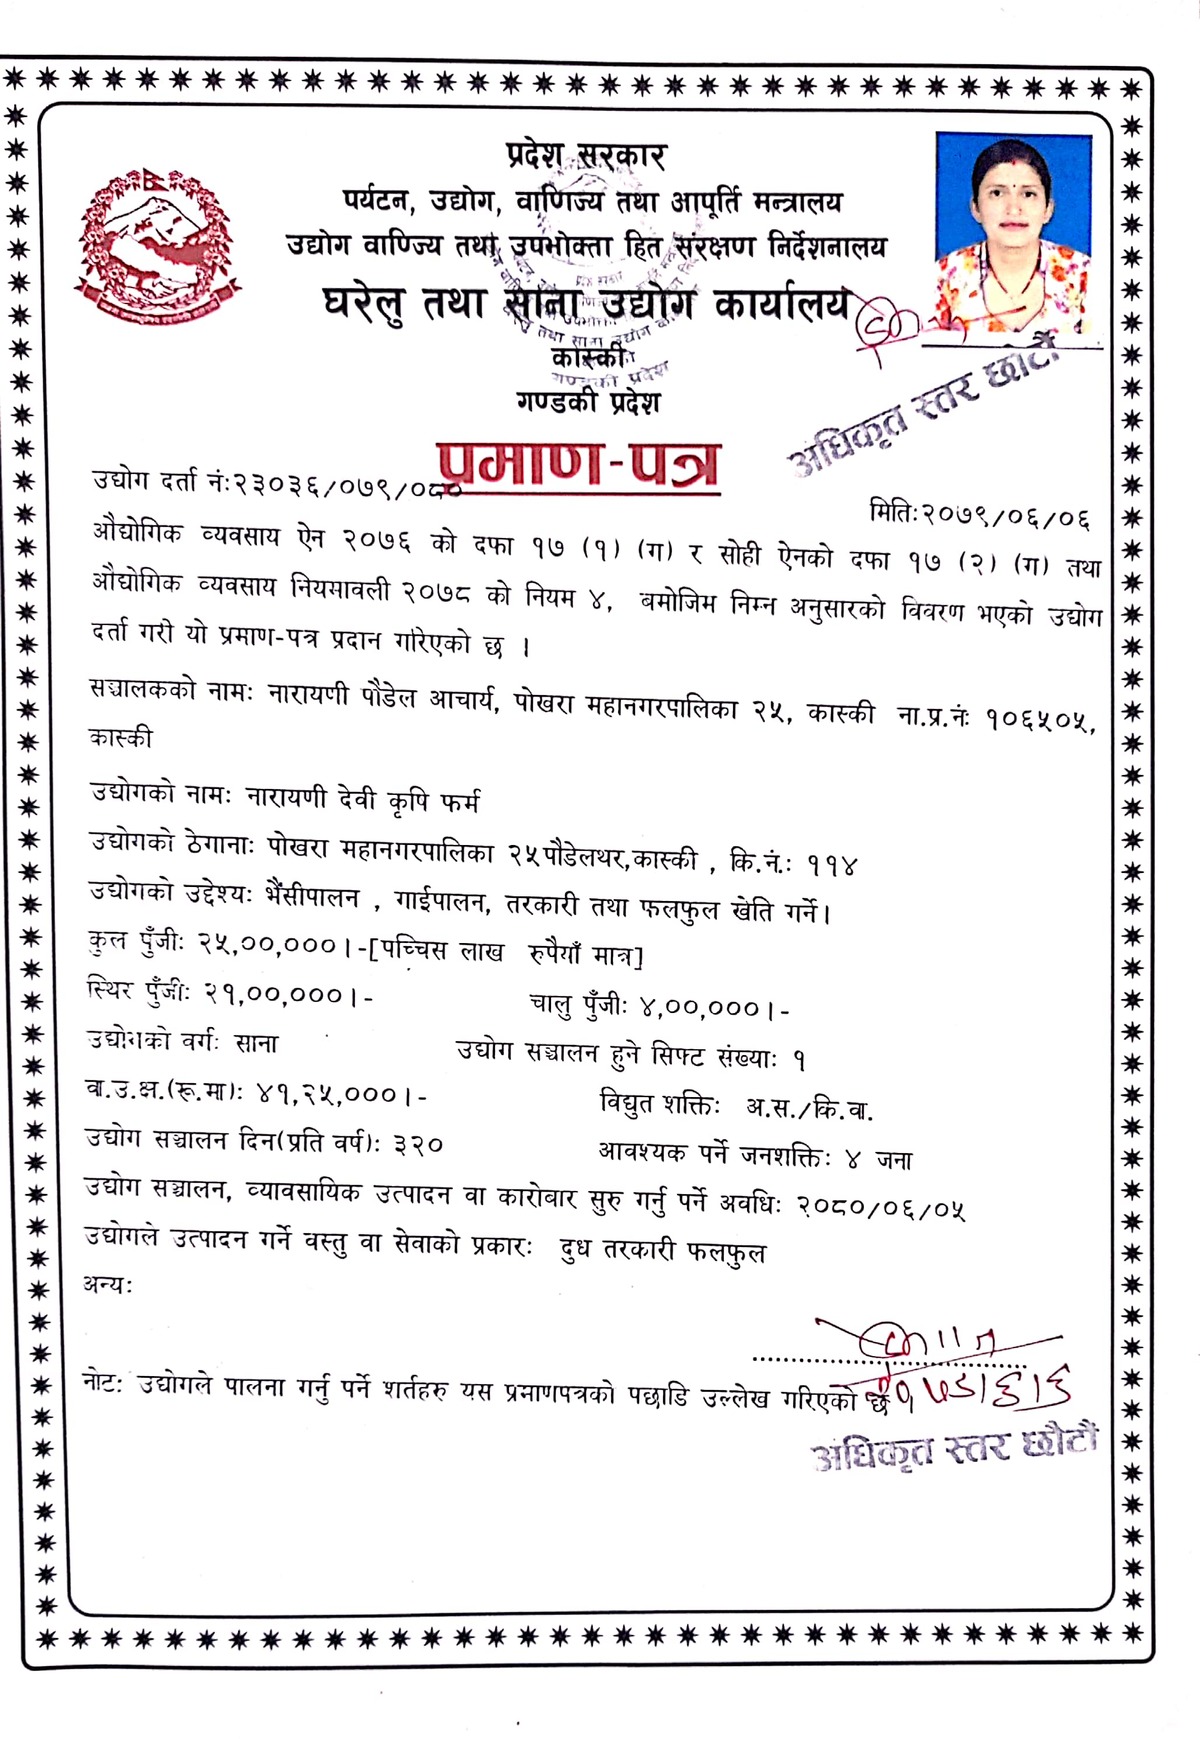 प्रदेश सरकार
पर्यटन, उद्योग, वाणिज्य तथा आपूर्ति मन्त्रालय
उद्योग वाणिज्य तथा उपभोक्ता हित संरक्षण निर्देशनालय
घरेलु तथा साना उद्योग कार्यालय
कास्की
गण्डकी प्रदेश
अधिकृत स्तर छोटौं
प्रमाण-पत्र
उद्योग दर्ता नं:२३०३६/०७९/०८०
मिति:२०७९/०६/०६
औद्योगिक व्यवसाय ऐन २०७६ को दफा १७ (१) (ग) र सोही ऐनको दफा १७ (२) (ग) तथा
औद्योगिक व्यवसाय नियमावली २०७८ को नियम ४, बमोजिम निम्न अनुसारको विवरण भएको उद्योग
दर्ता गरी यो प्रमाण-पत्र प्रदान गरिएको छ ।
सञ्चालकको नामः नारायणी पौडेल आचार्य, पोखरा महानगरपालिका २५, कास्की ना.प्र.नंः १०६५०५,
कास्की
उद्योगको नामः नारायणी देवी कृषि फर्म
उद्योगको ठेगानाः पोखरा महानगरपालिका २५पौडेलथर,कास्की , कि.नं.: ११४
उद्योगको उद्देश्यः भैंसीपालन , गाईपालन, तरकारी तथा फलफुल खेति गर्ने।
कुल पुँजीः २५,००,०००।-[पच्चिस लाख रुपैयाँ मात्र]
स्थिर पुँजीः २१,००,०००।- चालु पुँजीः ४,००,०००।-
उद्योगको वर्गः साना उद्योग सञ्चालन हुने सिफ्ट संख्याः १
वा.उ.क्ष.(रू.मा): ४१,२५,०००।- विद्युत शक्तिः अ.स./कि.वा.
उद्योग सञ्चालन दिन(प्रति वर्ष): ३२० आवश्यक पर्ने जनशक्तिः ४ जना
उद्योग सञ्चालन, व्यावसायिक उत्पादन वा कारोबार सुरु गर्नु पर्ने अवधिः २०८०/०६/०५
उद्योगले उत्पादन गर्ने वस्तु वा सेवाको प्रकारः दुध तरकारी फलफुल
अन्यः
नोटः उद्योगले पालना गर्नु पर्ने शर्तहरु यस प्रमाणपत्रको पछाडि उल्लेख गरिएको छ
अधिकृत स्तर छौटौं